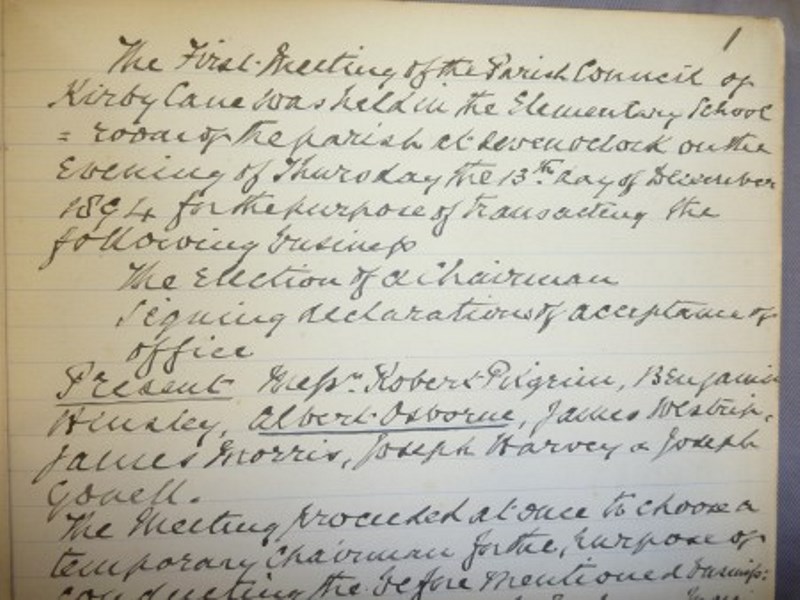 1
The First Meeting of the Parish Council of
Kirby Cane was held in the Elementary School
= room of the parish at seven oclock on the
Evening of Thursday the 13th day of December
1894 for the purpose of transacting the
following business
The Election of a Chairman
Signing declarations of acceptance of
office
Present Messrs Robert Pilgrim, Benjamin
Hinsley, Albert Osborne, James Westrip,
James Morris, Joseph Harvey & Joseph
Govell.
The Meeting proceeded at once to choose a
temporary Chairman for the purpose of
conducting the before mentioned business: